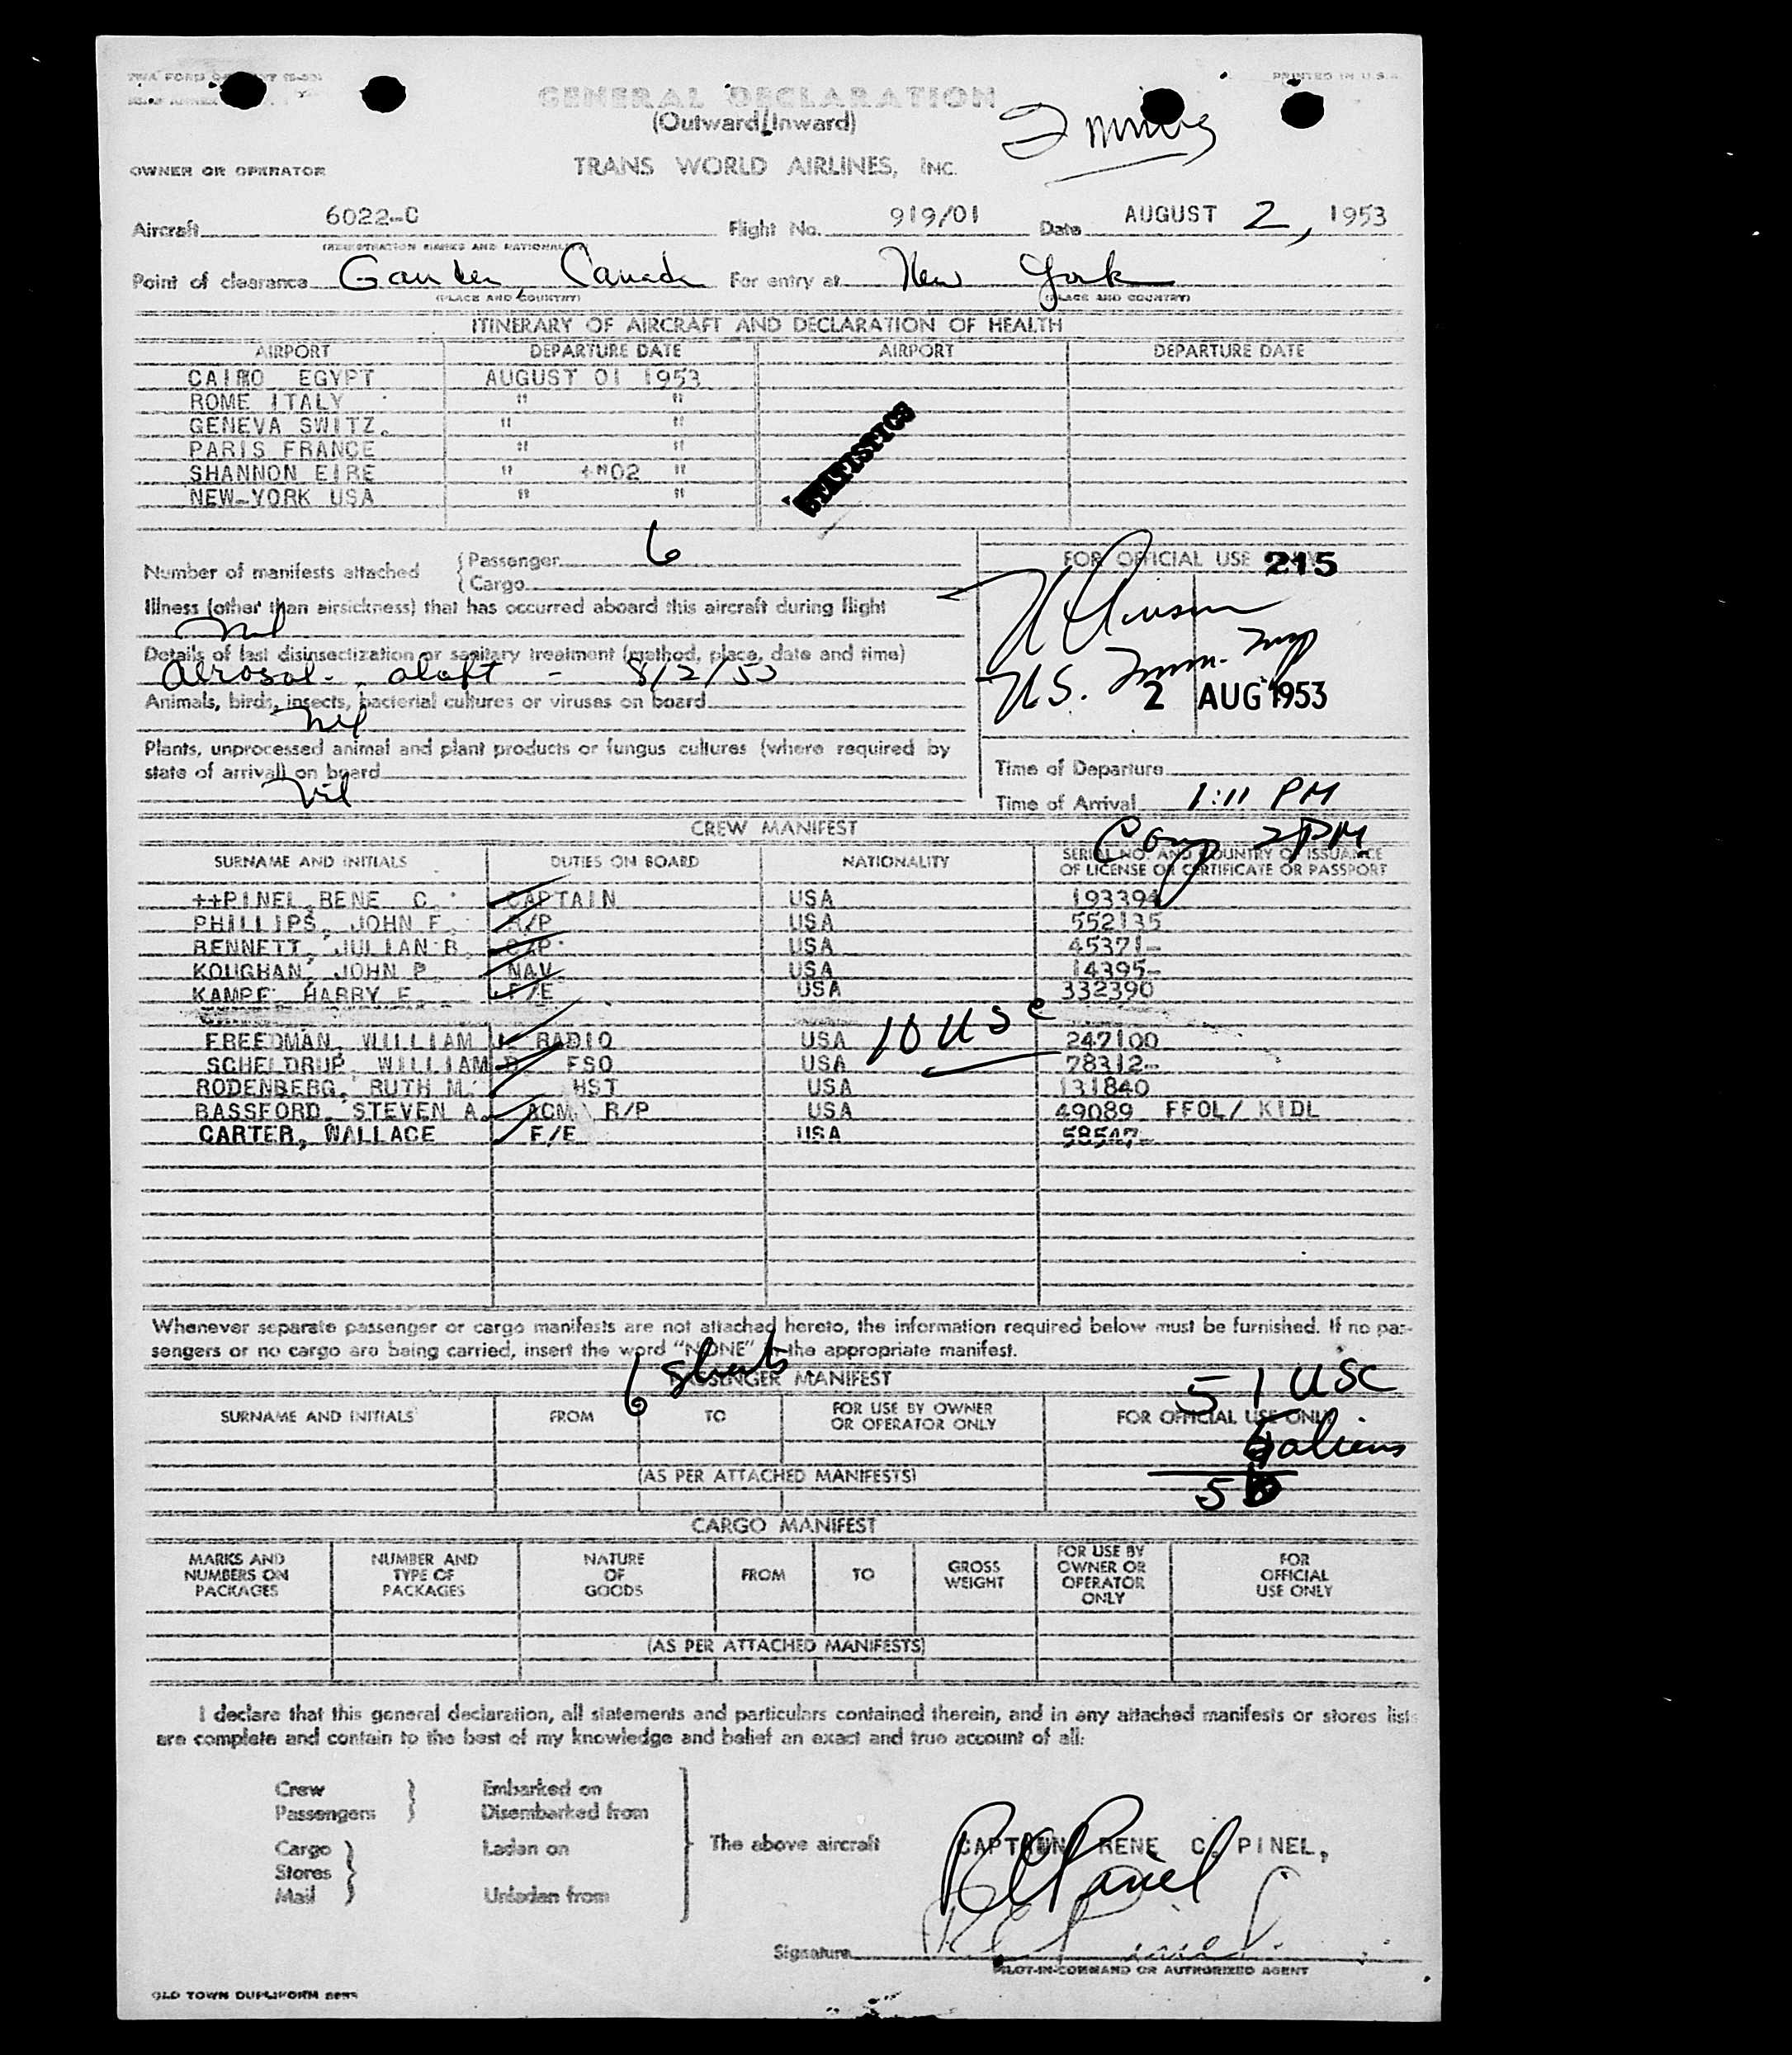 PRINTED IN U.S.A.
GENERAL DECLARATION
(Outward/Inward)
OWNER OR OPERATOR TRANS WORLD AIRLINES, INC.
Aircraft 6022-C Flight No. 919/01 Date AUGUST 2, 1953
(REGISTRATION MARKS AND NATIONALITY)
Point of clearance Gander, Canada For entry at New York
(PLACE AND COUNTRY) (PLACE AND COUNTRY)
ITINERARY OF AIRCRAFT AND DECLARATION OF HEALTH
AIRPORT DEPARTURE DATE AIRPORT DEPARTURE DATE
CAIRO EGYPT AUGUST 01 1953
ROME ITALY " "
GENEVA SWITZ. " "
PARIS FRANCE " "
SHANNON EIRE " 02 "
NEW-YORK USA " "
STATISTICS
Number of manifests attached { Passenger 6
Cargo
FOR OFFICIAL USE 215
Illness (other than airsickness) that has occurred aboard this aircraft during flight
nil
Details of last disinsectization or sanitary treatment (method, place, date and time)
Aerosol - aloft - 8/2/53
U.S. Imm. Insp
2 AUG 1953
Animals, birds, insects, bacterial cultures or viruses on board
nil
Plants, unprocessed animal and plant products or fungus cultures (where required by
state of arrival) on board
Nil
Time of Departure
Time of Arrival 1:11 PM
Comp 2PM
CREW MANIFEST
SURNAME AND INITIALS DUTIES ON BOARD NATIONALITY SERIAL NO. AND COUNTRY OF ISSUANCE
OF LICENSE OR CERTIFICATE OR PASSPORT
++PINEL, RENE C. CAPTAIN USA 193394
PHILLIPS, JOHN F. R/P USA 552135
BENNETT, JULIAN B. USA 45371-
KOUGHAN, JOHN P. NAV USA 14395-
KAMPE, HARRY E. F/E USA 332390
10 USC
FREEDMAN, WILLIAM RADIO USA 247100
SCHELDRUP, WILLIAM D. FSO USA 78312-
RODENBERG, RUTH M. HST USA 131840
BASSFORD, STEVEN A. ACM R/P USA 49089 FFOL/ KIDL
CARTER, WALLACE F/E USA 58547-
Whenever separate passenger or cargo manifests are not attached hereto, the information required below must be furnished. If no pas-
sengers or no cargo are being carried, insert the word "NONE" in the appropriate manifest.
6 sheets
PASSENGER MANIFEST
51 USC
SURNAME AND INITIALS FROM TO FOR USE BY OWNER
OR OPERATOR ONLY FOR OFFICIAL USE ONLY
5 aliens
(AS PER ATTACHED MANIFESTS)
CARGO MANIFEST
MARKS AND
NUMBERS ON
PACKAGES NUMBER AND
TYPE OF
PACKAGES NATURE
OF
GOODS FROM TO GROSS
WEIGHT FOR USE BY
OWNER OR
OPERATOR
ONLY FOR
OFFICIAL
USE ONLY
(AS PER ATTACHED MANIFESTS)
I declare that this general declaration, all statements and particulars contained therein, and in any attached manifests or stores lists
are complete and contain to the best of my knowledge and belief an exact and true account of all:
Crew } Embarked on
Passengers Disembarked from
The above aircraft CAPTAIN RENE C. PINEL,
Cargo } Laden on
Stores
Mail Unladen from
R C Pinel
Signature R C Pinel
PILOT-IN-COMMAND OR AUTHORIZED AGENT
OLD TOWN DUPLIFORM